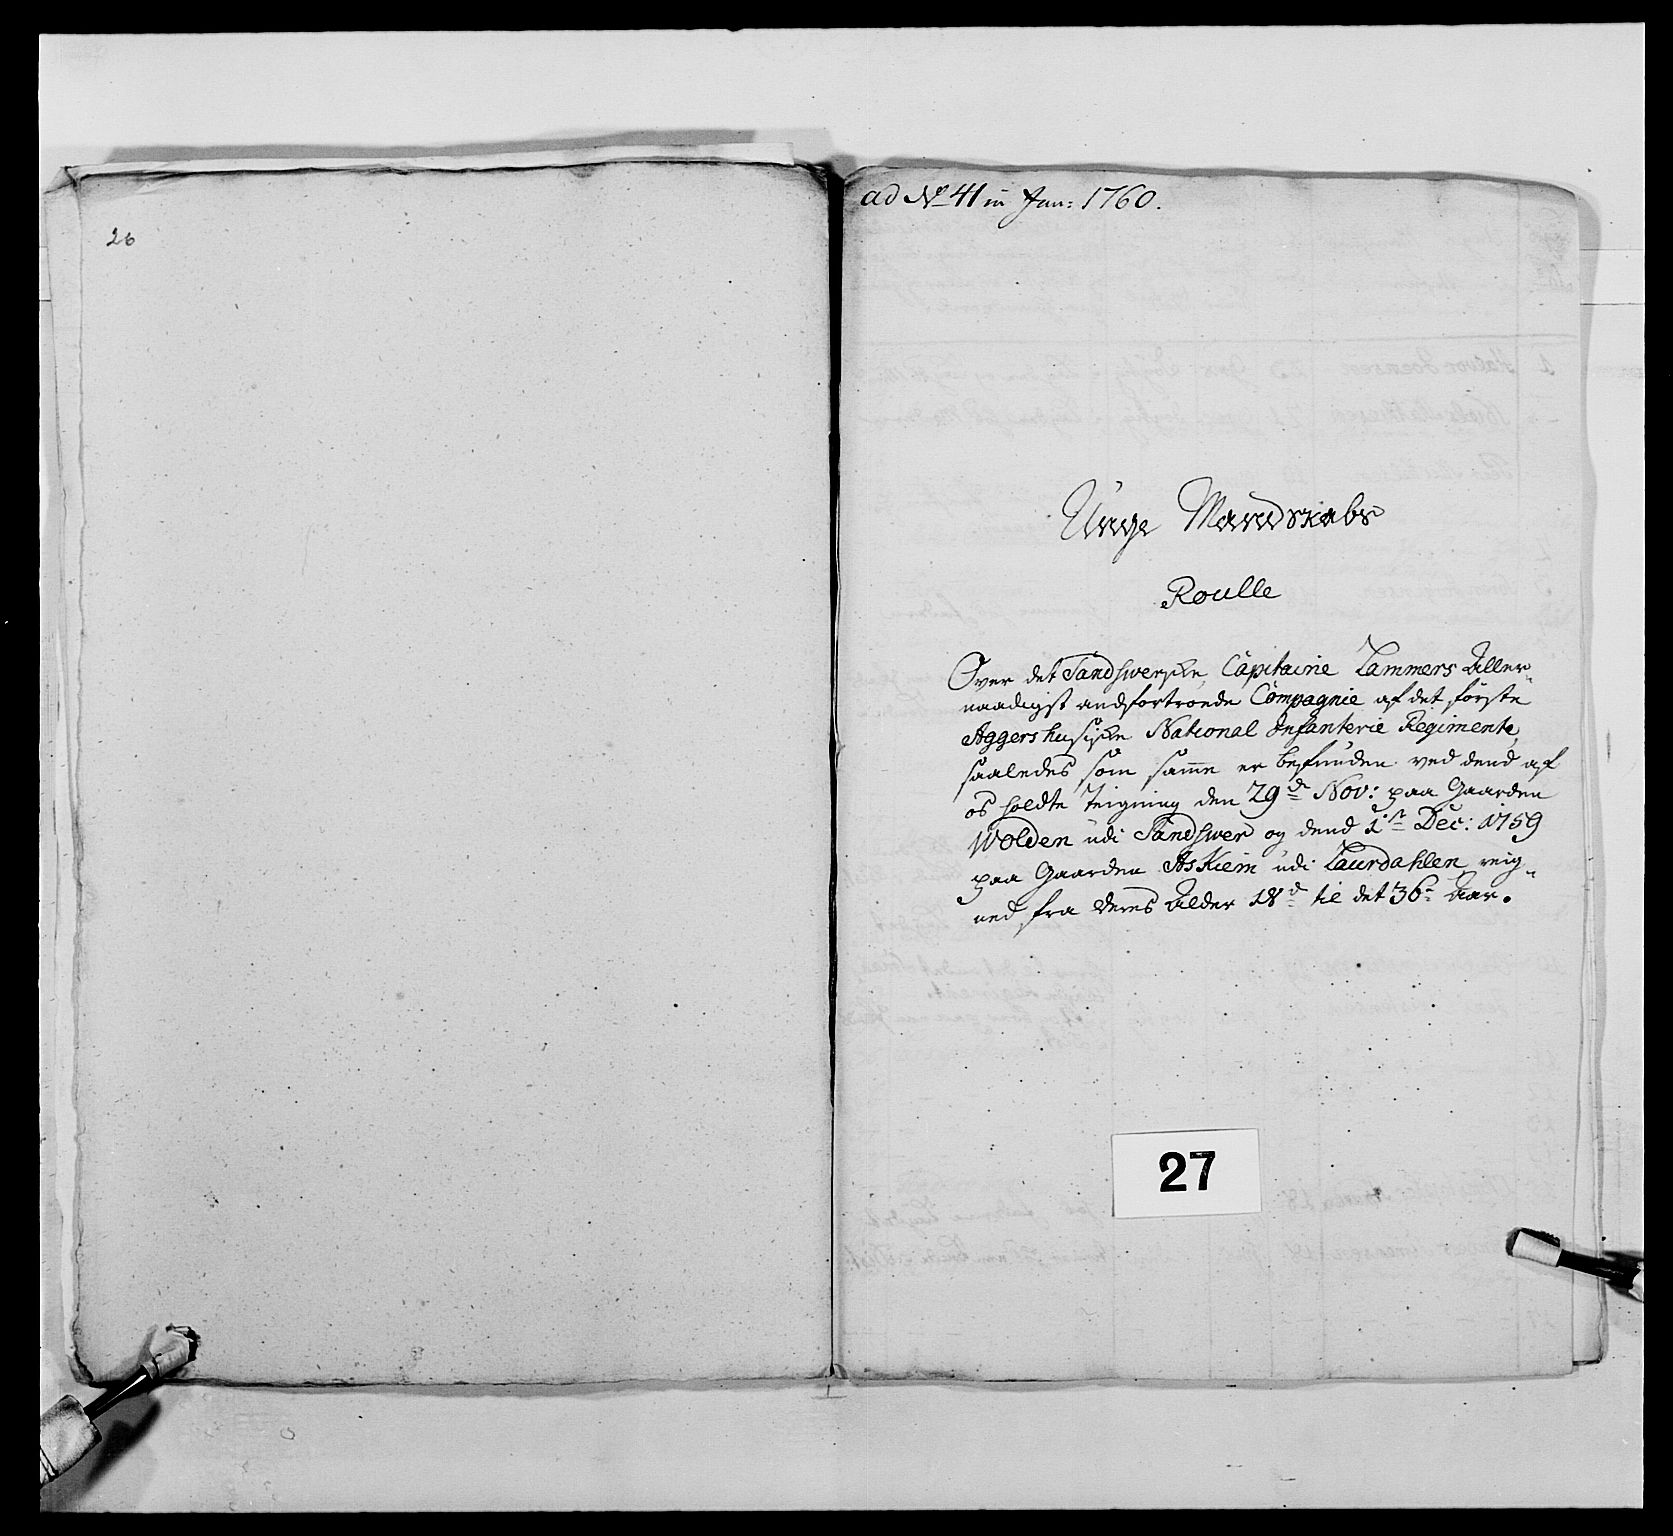 26
ad No 41 in Jan: 1760.
Unge Mandskabs
Roulle
Over det Sandswerske, Capitaine Lammers Aller-
naadigst andfortroede Compagnie af det første
Aggershusiske National Infanterie Regimente,
saaledes som samme er befunden ved dend af
os holdte Teigning den 29de Nov: paa Gaarden
Wolden udi Sandswer og dend 1ste Dec: 1759
paa Gaarden Askiem udi Laurdahlen, reig-
ned fra deres Alder 18de til det 36te Aar.
27